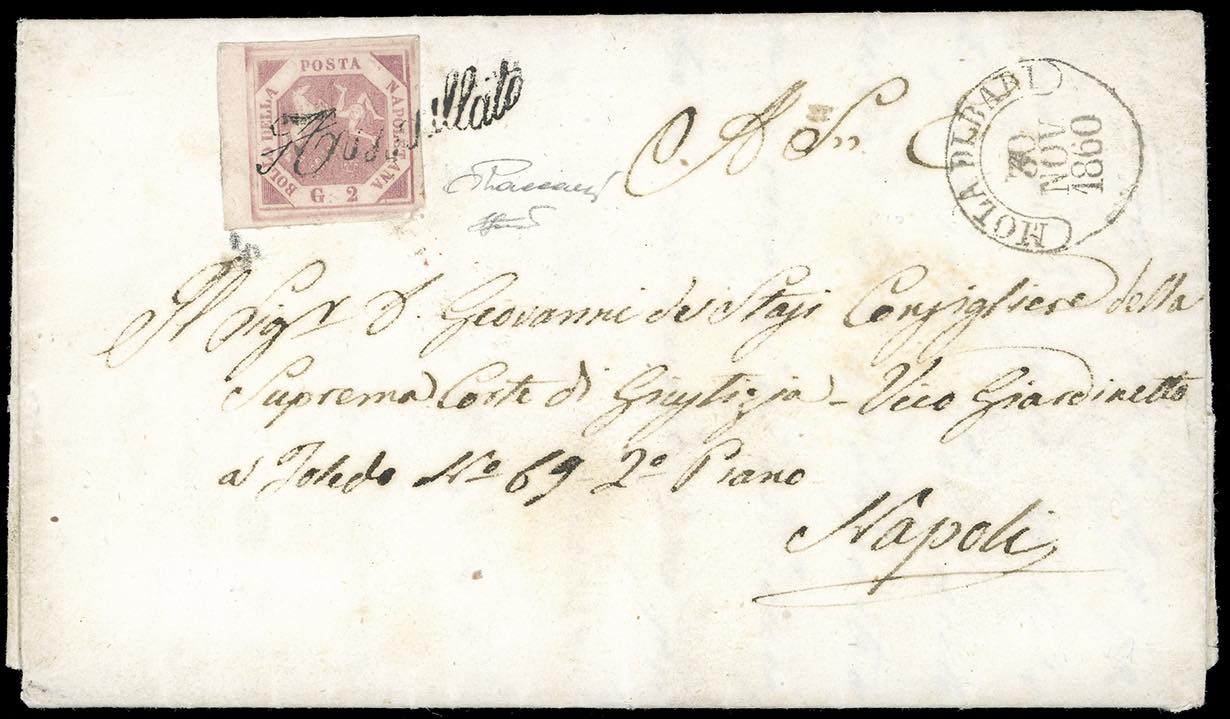 BOLLO DELLA POSTA NAPOLETANA
G. 2
Annullato
A Sr C
MOLA DI BARI
30
NOV
1860
Il Sigr D. Giovanni de Stasi Consigliere della
Suprema Corte di Giustizia - Vico Giardinetto
a Toledo No 69 2o Piano
Napoli